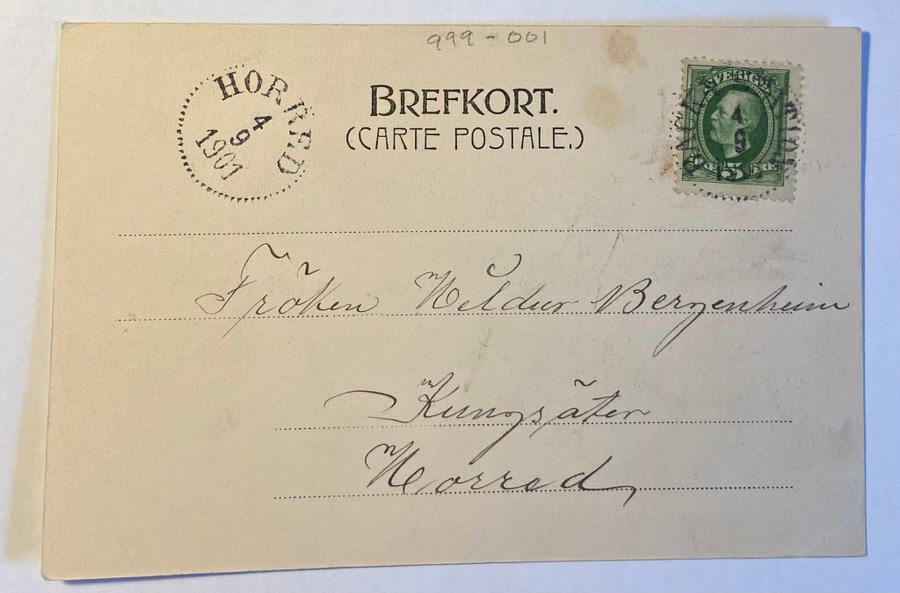 999-001
HORRED
4
9
1901
BREFKORT.
(CARTE POSTALE.)
SVERIGE
4
9
5 ÖRE
Fröken Hildur Bergenheim
Kungsäter
Horred